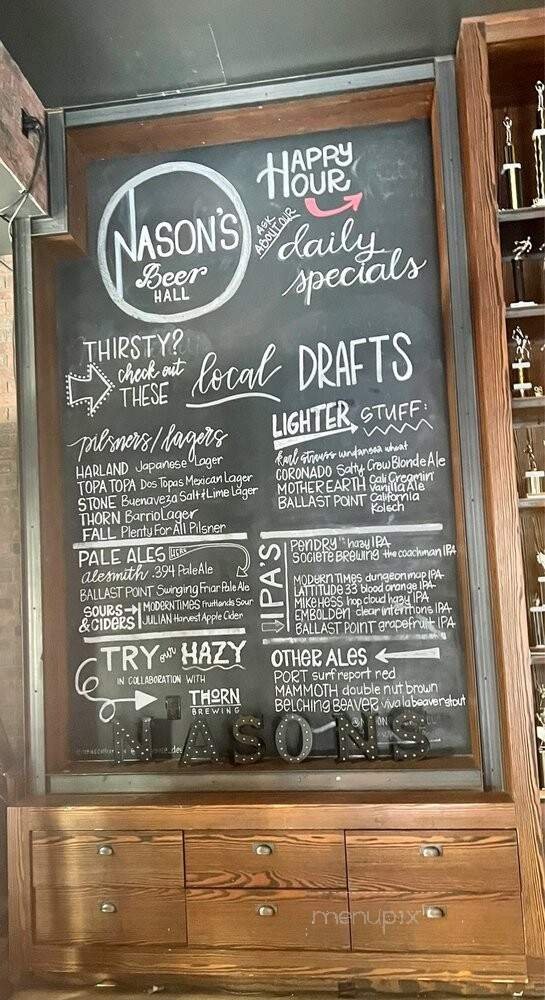 NASON'S
Beer
HALL
HAPPY
HOUR
ASK
ABOUT OUR
daily
specials
THIRSTY?
check out
THESE
local DRAFTS
pilsners/lagers
HARLAND Japanese Lager
TOPA TOPA Dos Topas Mexican Lager
STONE Buenaveza Salt & Lime Lager
THORN Barrio Lager
FALL Plenty For All Pilsner
LIGHTER STUFF:
Karl Strauss windansea wheat
CORONADO Salty Crew Blonde Ale
MOTHER EARTH Cali Creamin' Vanilla Ale
BALLAST POINT California Kolsch
PALE ALES HERE
alesmith .394 Pale Ale
BALLAST POINT Swinging Friar Pale Ale
SOURS & CIDERS
MODERN TIMES Fruitlands Sour
JULIAN Harvest Apple Cider
IPA'S
PENDRY hazy IPA
SOCIETE BREWING the coachman IPA
MODERN TIMES dungeon map IPA
LATTITUDE 33 blood orange IPA
MIKE HESS hop cloud hazy IPA
EMBOLDEN clear intentions IPA
BALLAST POINT grapefruit IPA
TRY our HAZY
IN COLLABORATION WITH
THORN
BREWING
OTHER ALES
PORT surf report red
MAMMOTH double nut brown
BELCHING BEAVER viva la beaver stout
NASONS
menupix